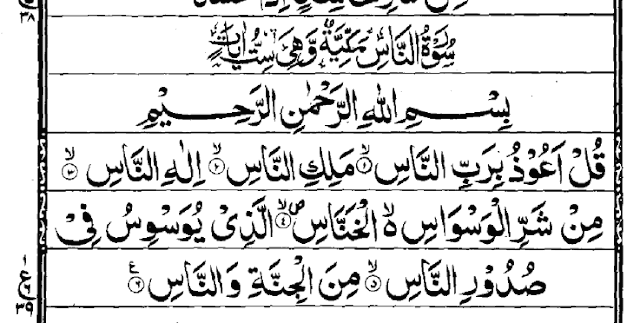 سُوْرَةُ النَّاسِ مَكِّيَّةٌ وَّهِيَ سِتُّ اٰيَاتٍ
بِسْمِ اللهِ الرَّحْمٰنِ الرَّحِيْمِ
قُلْ اَعُوْذُ بِرَبِّ النَّاسِ ۙ﴿۱﴾ مَلِكِ النَّاسِ ۙ﴿۲﴾ اِلٰهِ النَّاسِ ۙ﴿۳﴾
مِنْ شَرِّ الْوَسْوَاسِ ۙ۬ الْخَنَّاسِ ۪ۙ﴿۴﴾ الَّذِيْ يُوَسْوِسُ فِيْ
صُدُوْرِ النَّاسِ ۙ﴿۵﴾ مِنَ الْجِنَّةِ وَ النَّاسِ ﴿۶﴾ع
۳۸
۳۹